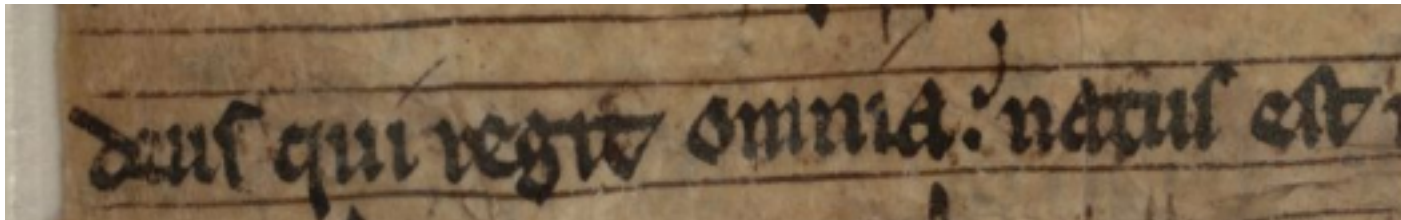 deus qui regit omnia. natus est